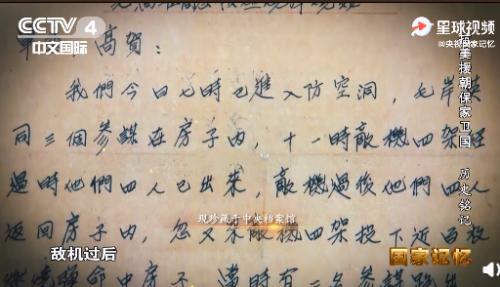 CCTV 4
中文国际
星球视频
@央视国家记忆
高賀：
我們今日七時已進入防空洞，毛岸英
同三個參謀在房子內，十一時敵機四架經
過時他們四人已出来，敵機過後他們四人
返回房子內，忽又来敵機四架投下近百枚
命中房子，當時有二名參謀跑出
现珍藏于中央档案馆
敌机过后
抗美援朝保家卫国 历史铭记
国家记忆